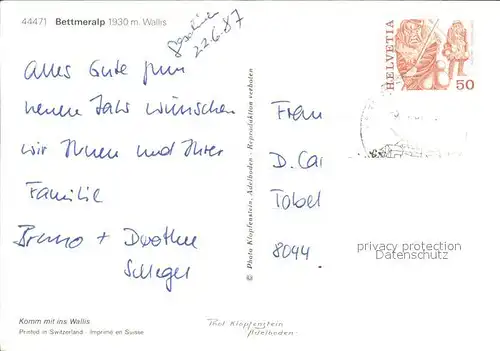 44471 Bettmeralp 1930 m. Wallis
22.6.87
Alles Gute zum
neuen Jahr wünschen
wir Ihnen und Ihrer
Familie
Bruno + Dorothee
Schlegel
Komm mit ins Wallis
Printed in Switzerland - Imprimé en Suisse
© Photo Klopfenstein, Adelboden - Reproduktion verboten
Phot Klopfenstein
Adelboden
HELVETIA
50
Frau
D. Car
Tobel
8044
privacy protection
Datenschutz